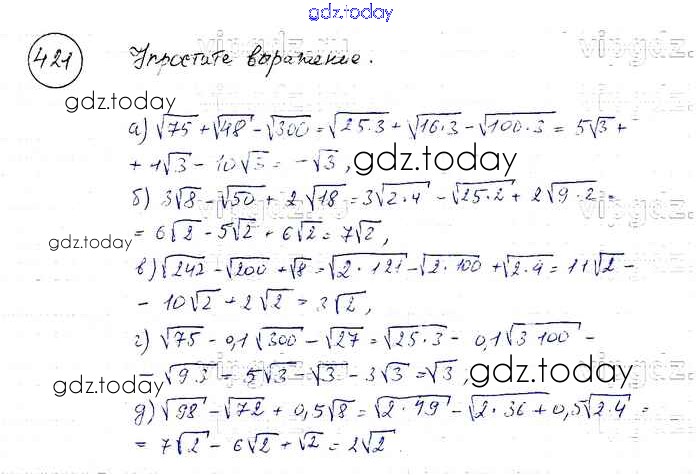 gdz.today
421 Упростите выражение.
gdz.today
а) √75 + √48 - √300 = √25·3 + √16·3 - √100·3 = 5√3 +
+ 4√3 - 10√3 = -√3,
gdz.today
б) 3√8 - √50 + 2√18 = 3√2·4 - √25·2 + 2√9·2 =
gdz.today
= 6√2 - 5√2 + 6√2 = 7√2,
в) √242 - √200 + √8 = √2·121 - √2·100 + √2·4 = 11√2 -
- 10√2 + 2√2 = 3√2,
г) √75 - 0,1√300 - √27 = √25·3 - 0,1√3·100 -
- √9·3 = 5√3 - √3 - 3√3 = √3,
gdz.today
gdz.today
д) √98 - √72 + 0,5√8 = √2·49 - √2·36 + 0,5√2·4 =
= 7√2 - 6√2 + √2 = 2√2.